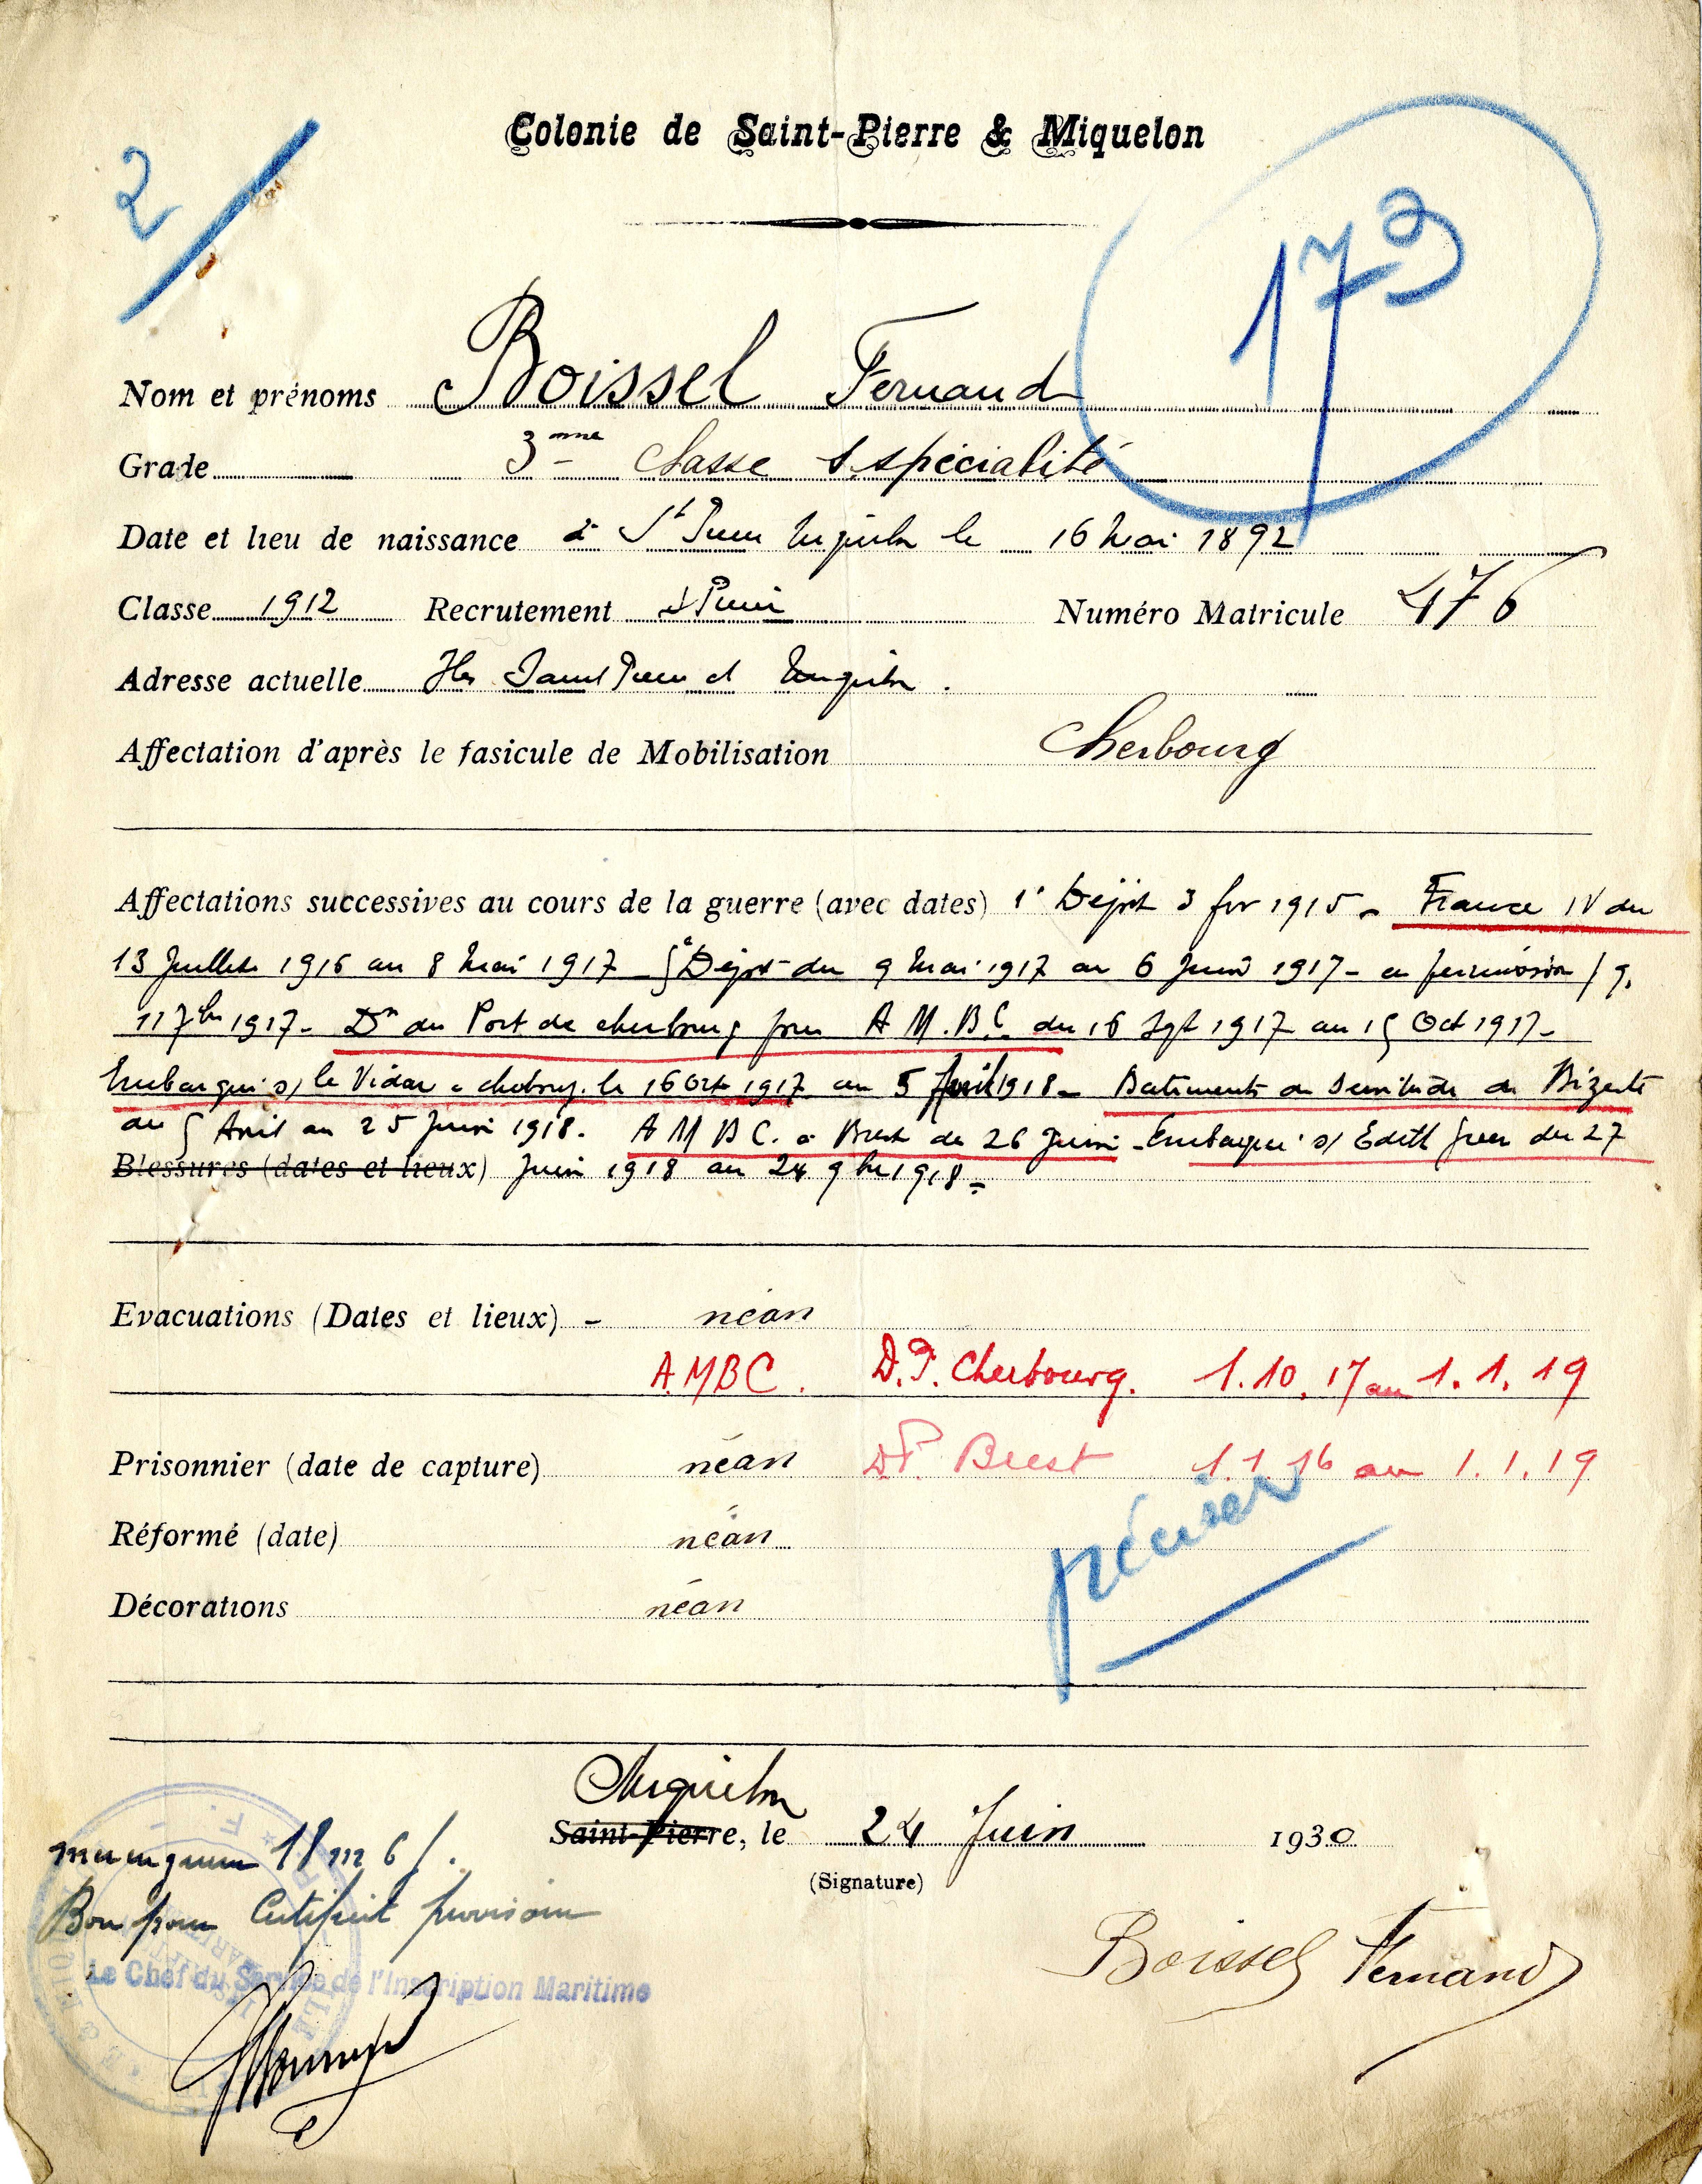 Colonie de Saint-Pierre & Miquelon
2
173
Nom et prénoms Boissel Fernand
Grade 3ème Classe s spécialité
Date et lieu de naissance à St Pierre Miquelon le 16 Mai 1892
Classe 1912 Recrutement St Pierre Numéro Matricule 476
Adresse actuelle Iles Saint Pierre et Miquelon.
Affectation d'après le fasicule de Mobilisation Cherbourg
Affectations successives au cours de la guerre (avec dates) 1r Dépôt 3 fev 1915 - France IV du
13 Juillet 1916 au 8 Mai 1917 - 5e Dépôt du 9 Mai 1917 au 6 Juin 1917 - en permission
11 7bre 1917 - Don du Port de cherbourg pour A.M.B.C. du 16 Sept 1917 au 15 Oct 1917 -
Embarqué s/ le Vidar à cherbourg le 16 Octe 1917 au 5 Avril 1918 - Batiments de Servitude de Bizerte
du 5 Avril au 25 Juin 1918. A M B C. à Brest du 26 Juin - Embarqué s/ Edith du 27
Blessures (dates et lieux) Juin 1918 au 24 9bre 1918 -
Evacuations (Dates et lieux) - néan
A.M.B.C. D.P. Cherbourg. 1.10.17 au 1.1.19
Prisonnier (date de capture) néan D.P. Brest 1.1.16 au 1.1.19
Réformé (date) néan
préciser
Décorations néan
Miquelon
Saint-Pierre, le 24 Juin 1930
(Signature)
18 m 6 j.
Bon pour Certificat provisoire
Le Chef du Service de l'Inscription Maritime
Boissel Fernand